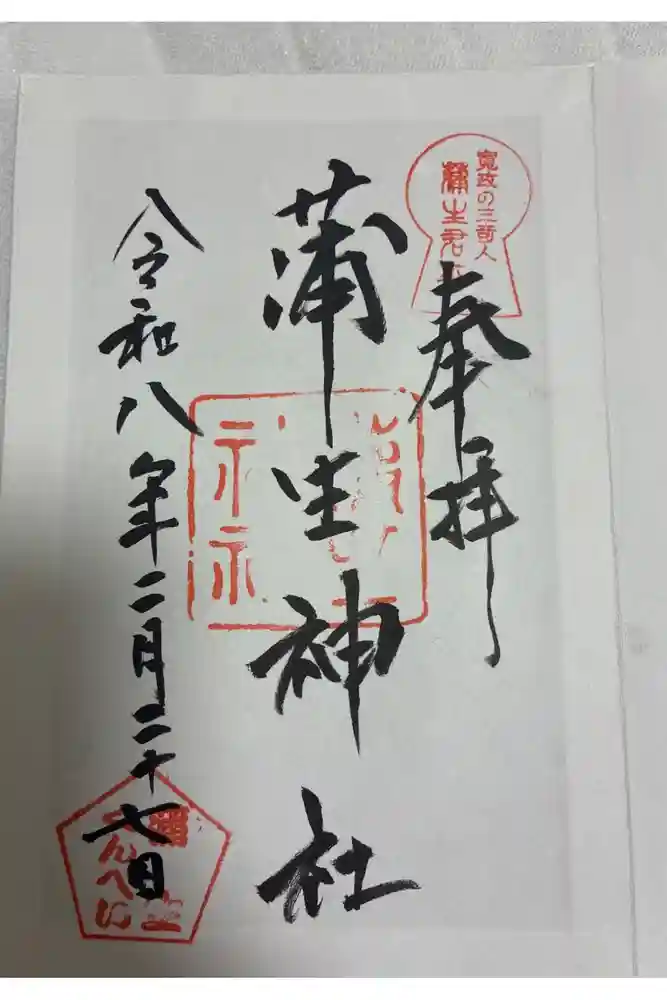 寛政の三奇人
蒲生君平
奉拝
蒲生神社
令和八年二月二十七日